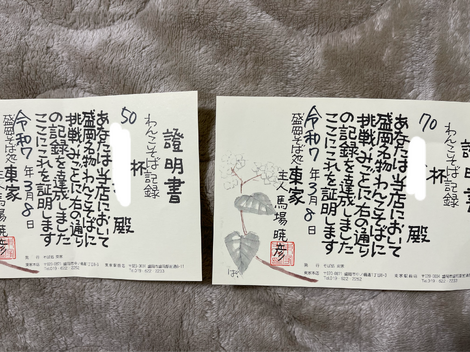 證明書
わんこそば記録
50 杯
殿
あなたは当店において
盛岡名物わんこそばに
挑戦しみごとに右の通り
の記録を達成しました
ここにこれを証明します
令和7年3月8日
盛岡そば処 東家
主人
證明書
わんこそば記録
70 杯
殿
あなたは当店において
盛岡名物わんこそばに
挑戦しみごとに右の通り
の記録を達成しました
ここにこれを証明します
令和7年3月8日
盛岡そば処 東家
主人 馬場暁彦